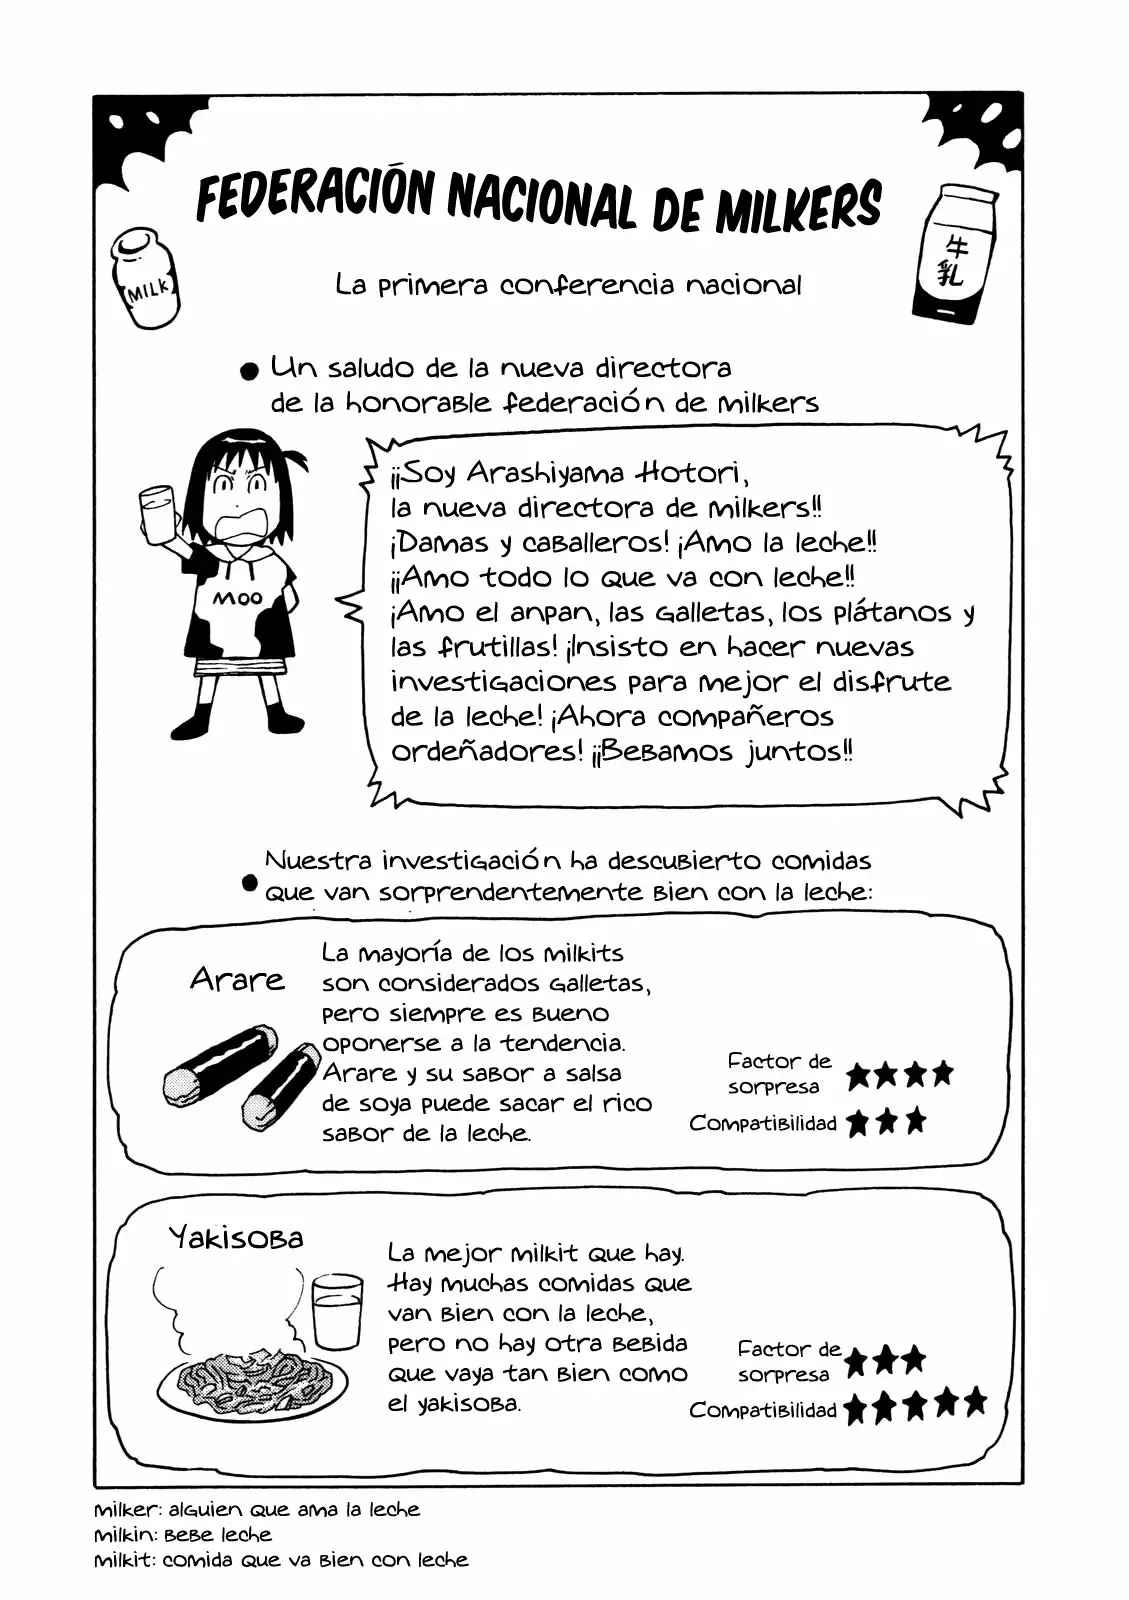 FEDERACIÓN NACIONAL DE MILKERS
MILK
牛
乳
La primera conferencia nacional
● Un saludo de la nueva directora
de la honorable federación de milkers
MOO
¡¡Soy Arashiyama Hotori,
la nueva directora de milkers!!
¡Damas y caballeros! ¡Amo la leche!!
¡¡Amo todo lo que va con leche!!
¡Amo el anpan, las galletas, los plátanos y
las frutillas! ¡Insisto en hacer nuevas
investigaciones para mejor el disfrute
de la leche! ¡Ahora compañeros
ordeñadores! ¡¡Bebamos juntos!!
● Nuestra investigación ha descubierto comidas
que van sorprendentemente bien con la leche:
Arare
La mayoría de los milkits
son considerados galletas,
pero siempre es bueno
oponerse a la tendencia.
Arare y su sabor a salsa
de soya puede sacar el rico
sabor de la leche.
Factor de
sorpresa ★★★★
Compatibilidad ★★★
Yakisoba
La mejor milkit que hay.
Hay muchas comidas que
van bien con la leche,
pero no hay otra bebida
que vaya tan bien como
el yakisoba.
Factor de
sorpresa ★★★
Compatibilidad ★★★★★
milker: alguien que ama la leche
milkin: bebe leche
milkit: comida que va bien con leche